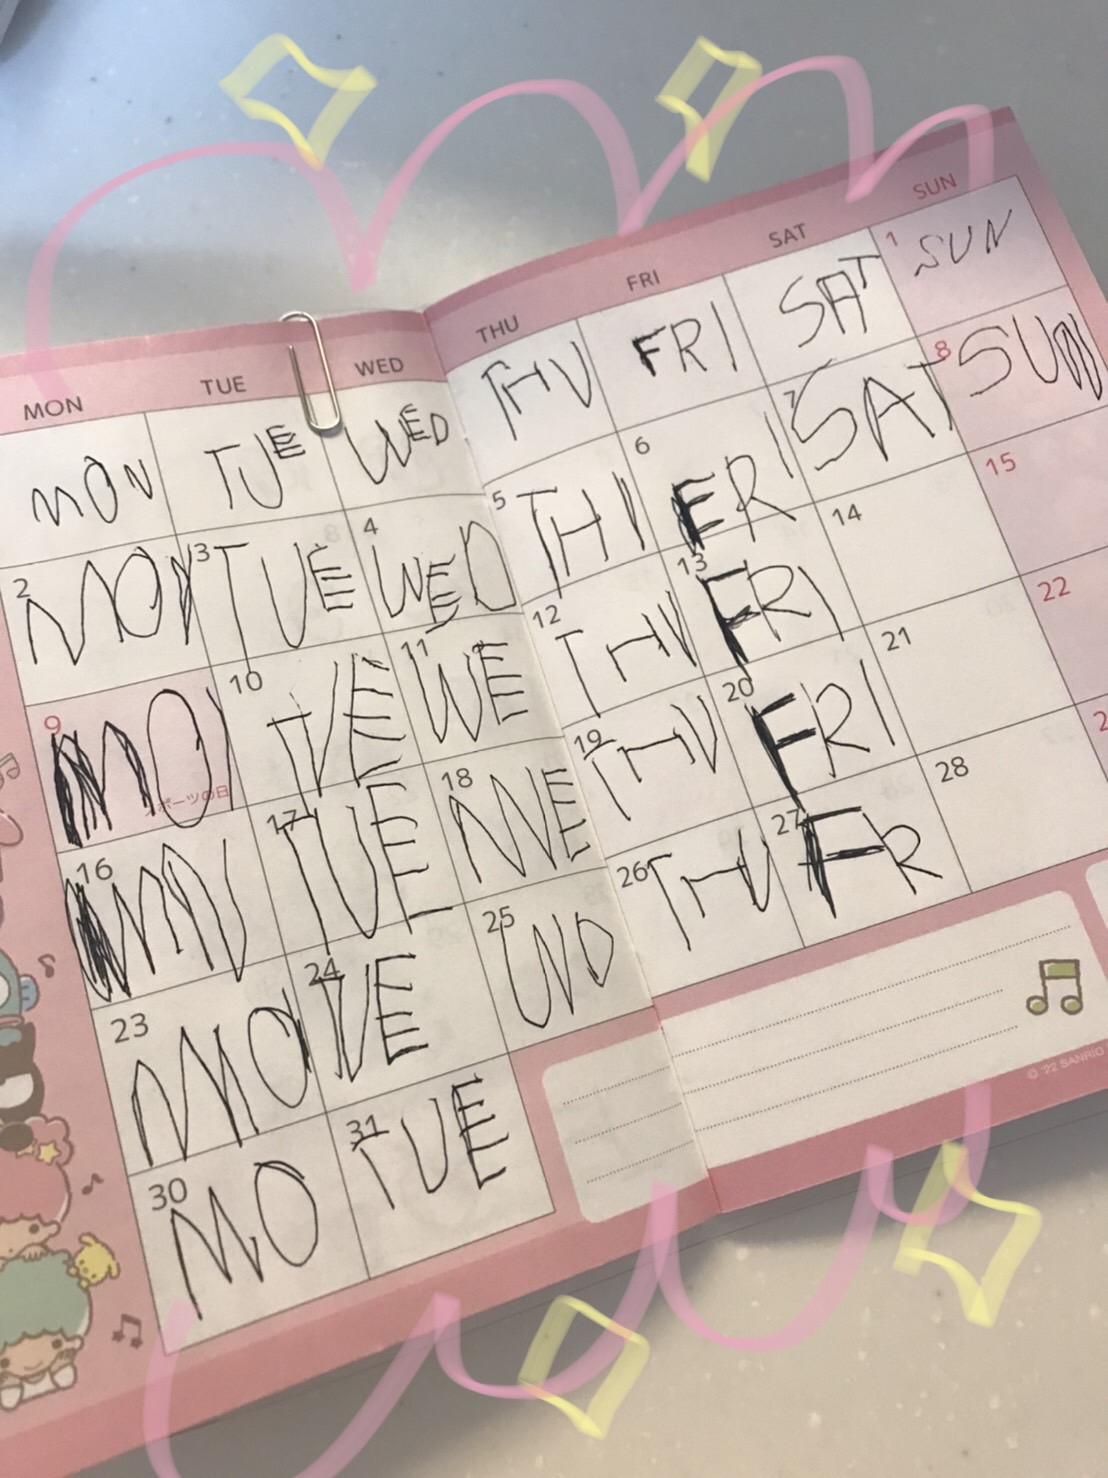 MON TUE WED THU FRI SAT SUN
1
MON TUE WED THU FRI SAT SUN
2 3 4 5 6 7 8
MON TUE WED THU FRI SAT SUN
9 10 11 12 13 14 15
MO TUE WE THU FRI
スポーツの日
16 17 18 19 20 21 22
TUE WE THU FRI
23 24 25 26 27 28
MO TUE THU FR
30 31
MO TUE
© '22 SANRIO